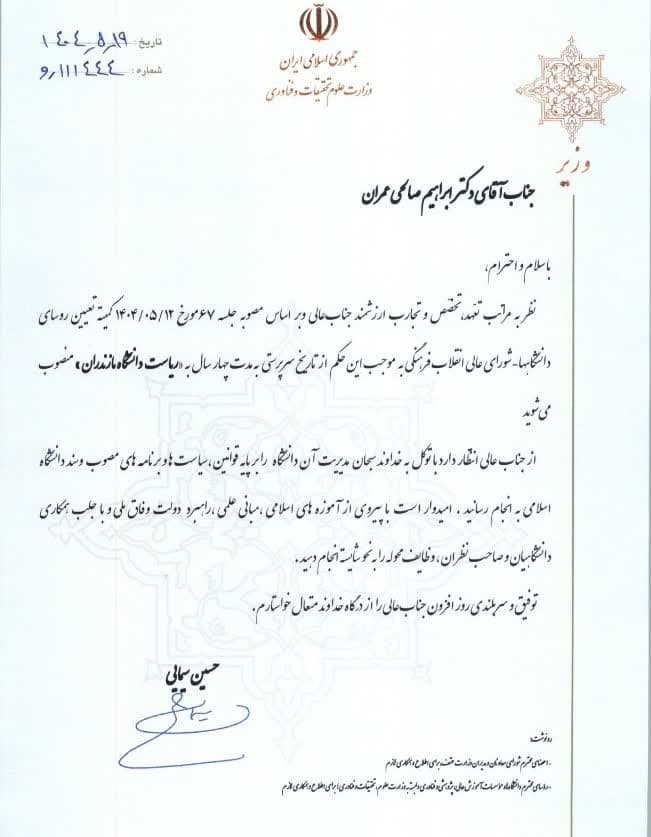 جمهوری اسلامی ایران
وزارت علوم تحقیقات و فناوری
تاریخ: ۱۴۰۴,۵,۱۹
شماره: ۱۱۱۴۴۴/و
وزیر
جناب آقای دکتر ابراهیم صالحی عمران
با سلام و احترام،
نظر به مراتب تعهد، تخصص و تجارب ارزشمند جناب‌عالی و بر اساس مصوبه جلسه ۶۷ مورخ ۱۴۰۴/۰۵/۱۲ کمیته تعیین روسای
دانشگاهها-شورای عالی انقلاب فرهنگی به موجب این حکم از تاریخ سرپرستی به مدت چهار سال به «ریاست دانشگاه مازندران» منصوب
می‌شوید
از جناب عالی انتظار دارد با توکل به خداوند سبحان مدیریت آن دانشگاه را بر پایه قوانین، سیاست ها و برنامه های مصوب و سند دانشگاه
اسلامی به انجام رسانید. امیدوار است با پیروی از آموزه های اسلامی، مبانی علمی، راهبرد دولت وفاق ملی و با جلب همکاری
دانشگاهیان و صاحب نظران، وظایف محوله را به نحو شایسته انجام دهید.
توفیق و سربلندی روز افزون جناب‌عالی را از درگاه خداوند متعال خواستارم.
حسین سیمایی
رونوشت:
-اعضای محترم شورای معاونان و مدیران وزارت متبوع برای اطلاع و همکاری لازم
-روسای محترم دانشگاه‌ها و موسسات آموزش عالی، پژوهشی و فناوری وابسته به وزارت علوم، تحقیقات و فناوری برای اطلاع و همکاری لازم